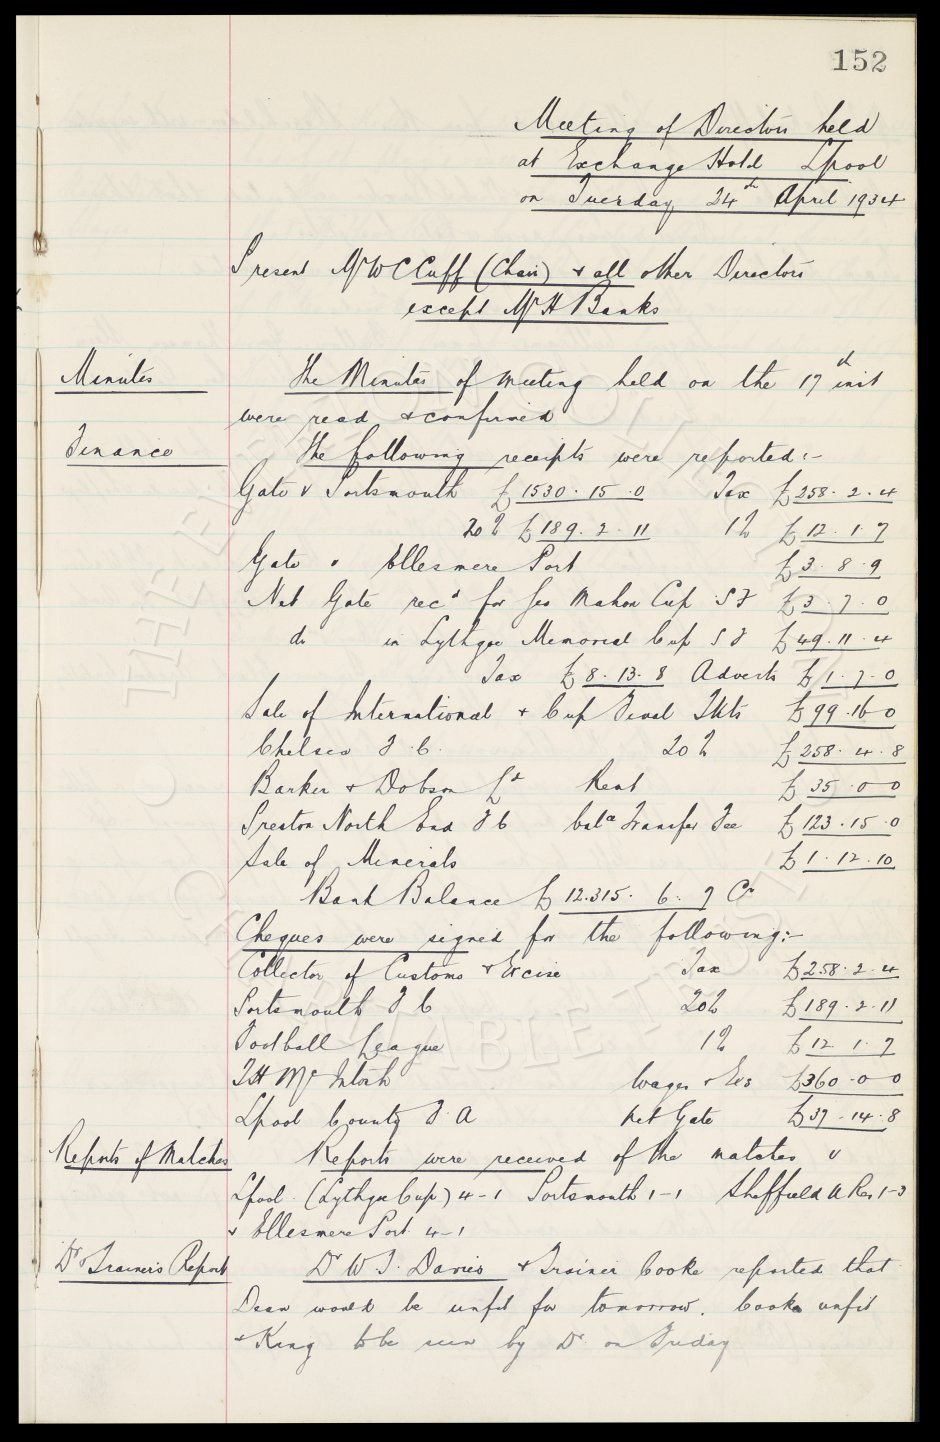 152
Meeting of Directors held
at Exchange Hotel Lpool
on Tuesday 24th April 1934
Present Mr W C Cuff (Chair) & all other Directors
except Mr H Banks
Minutes The Minutes of meeting held on the 17th inst
were read & confirmed
Finance The following receipts were reported:-
Gate v Portsmouth £1530.15.0 Tax £258.2.4
20% £189.2.11 1% £12.1.7
Gate " Ellesmere Port £3.8.9
Net Gate recd for Geo Mahon Cup S F £3.7.0
do in Lythgoe Memorial Cup S F £49.11.4
Tax £8.13.8 Adverts £1.7.0
Sale of International & Cup Final Tkts £99.16.0
Chelsea F.C. 20% £258.4.8
Barker & Dobson Ld Rent £35.0.0
Preston North End F C balce Transfer Fee £123.15.0
Sale of Minerals £1.12.10
Bank Balance £12.315.6.7 Cr
Cheques were signed for the following:-
Collector of Customs & Excise Tax £258.2.4
Portsmouth F C 20% £189.2.11
Football League 1% £12.1.7
T H McIntosh Wages & Exs £360.0.0
Lpool County F.A Net Gate £37.14.8
Reports of Matches Reports were received of the matches v
Lpool. (Lythgoe Cup) 4-1 Portsmouth 1-1 Sheffield U Res 1-3
& Ellesmere Port 4-1
Dr & Trainer's Report Dr W J. Davies & Trainer Cooke reported that
Dean would be unfit for tomorrow. Cook unfit
& King to be seen by Dr. on Friday